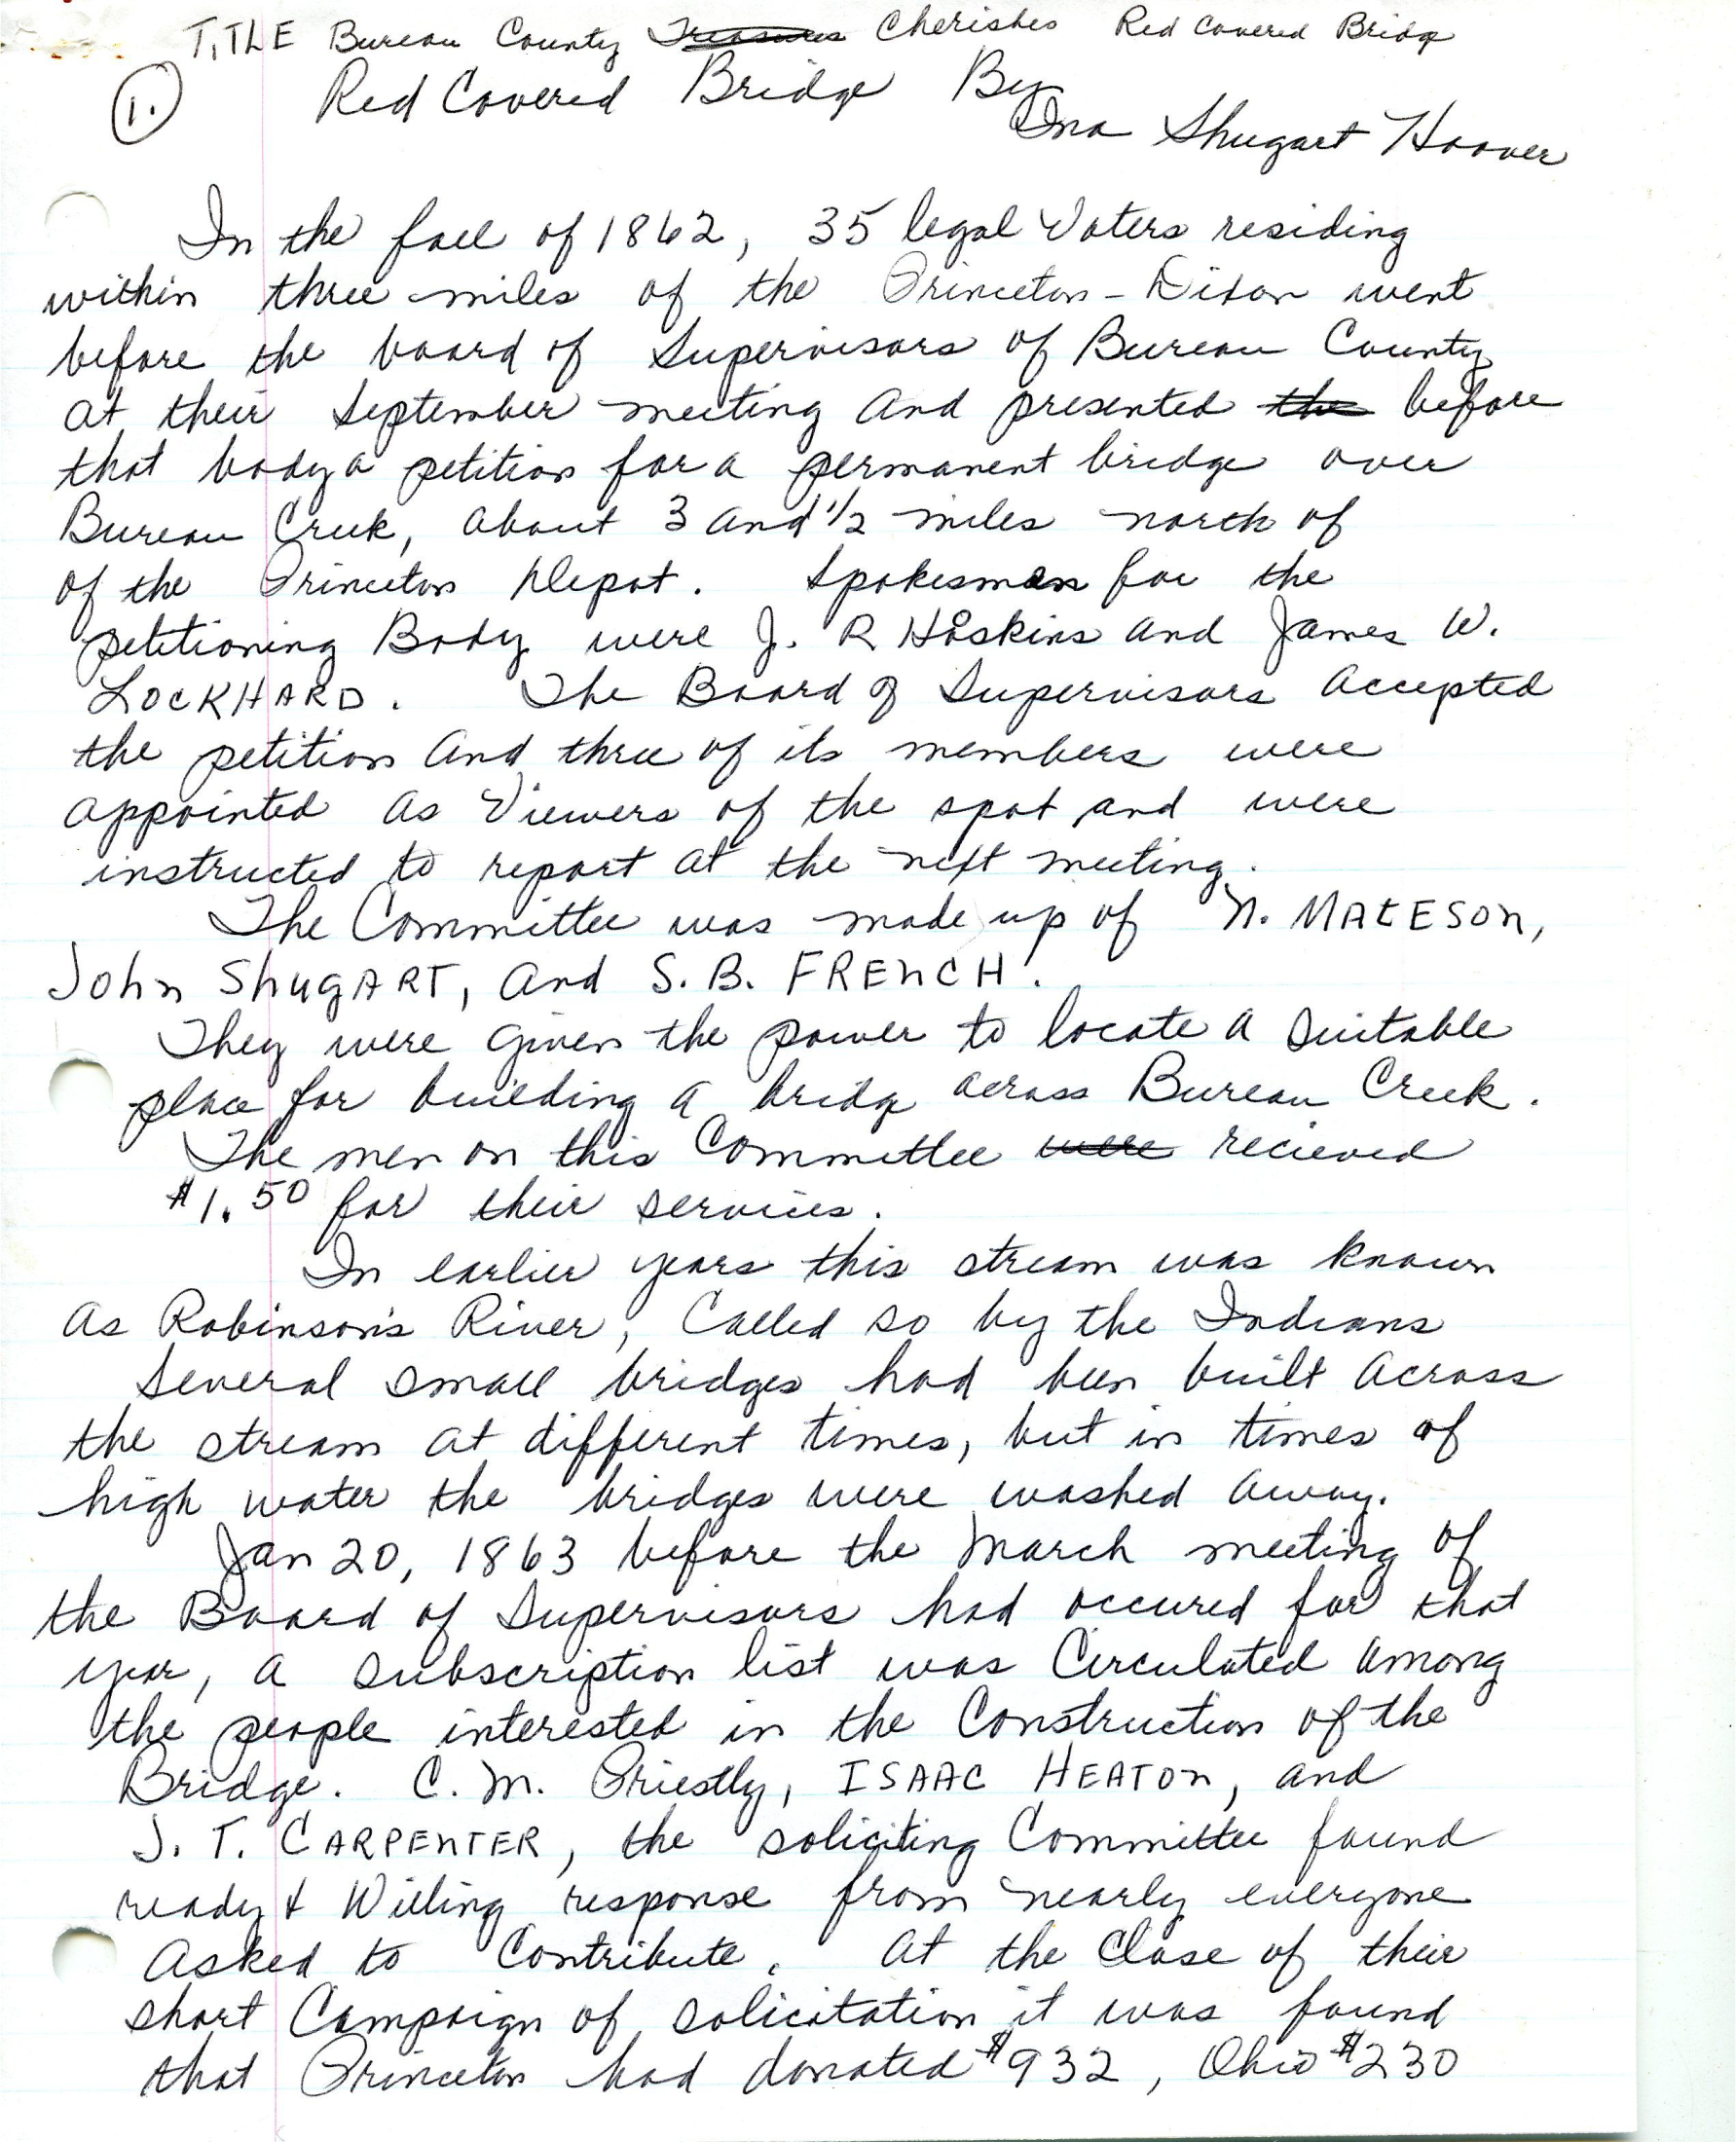 TITLE Bureau County Treasures Cherishes Red Covered Bridge
1. Red Covered Bridge By
Ina Shugart Hoover
In the fall of 1862, 35 legal Voters residing
within three miles of the Princeton-Dixon went
before the board of Supervisors of Bureau County
at their September meeting and presented the before
that body a petition for a permanent bridge over
Bureau Creek, about 3 and 1/2 miles north of
of the Princeton Depot. Spokesmen for the
petitioning Body were J. R Hoskins and James W.
LOCKHARD. The Board of Supervisors Accepted
the petition and three of its members were
appointed as Viewers of the spot and were
instructed to report at the next meeting.
The Committee was made up of N. MATESON,
John ShugART, and S. B. FRENCH.
They were given the power to locate a suitable
place for building a bridge across Bureau Creek.
The men on this Committee were recieved
$1.50 for their services.
In earlier years this stream was known
as Robinson's River, Called so by the Indians
Several small bridges had been built across
the stream at different times, but in times of
high water the bridges were washed away.
Jan 20, 1863 before the March meeting of
the Board of Supervisors had occured for that
year, a subscription list was Circulated among
the people interested in the Construction of the
Bridge. C. M. Priestly, ISAAC HEATON, and
J. T. CARPENTER, the soliciting Committee found
ready & Willing response from nearly everyone
asked to Contribute. At the Close of their
short Campaign of solicitation it was found
that Princeton had donated $932, Ohio $230